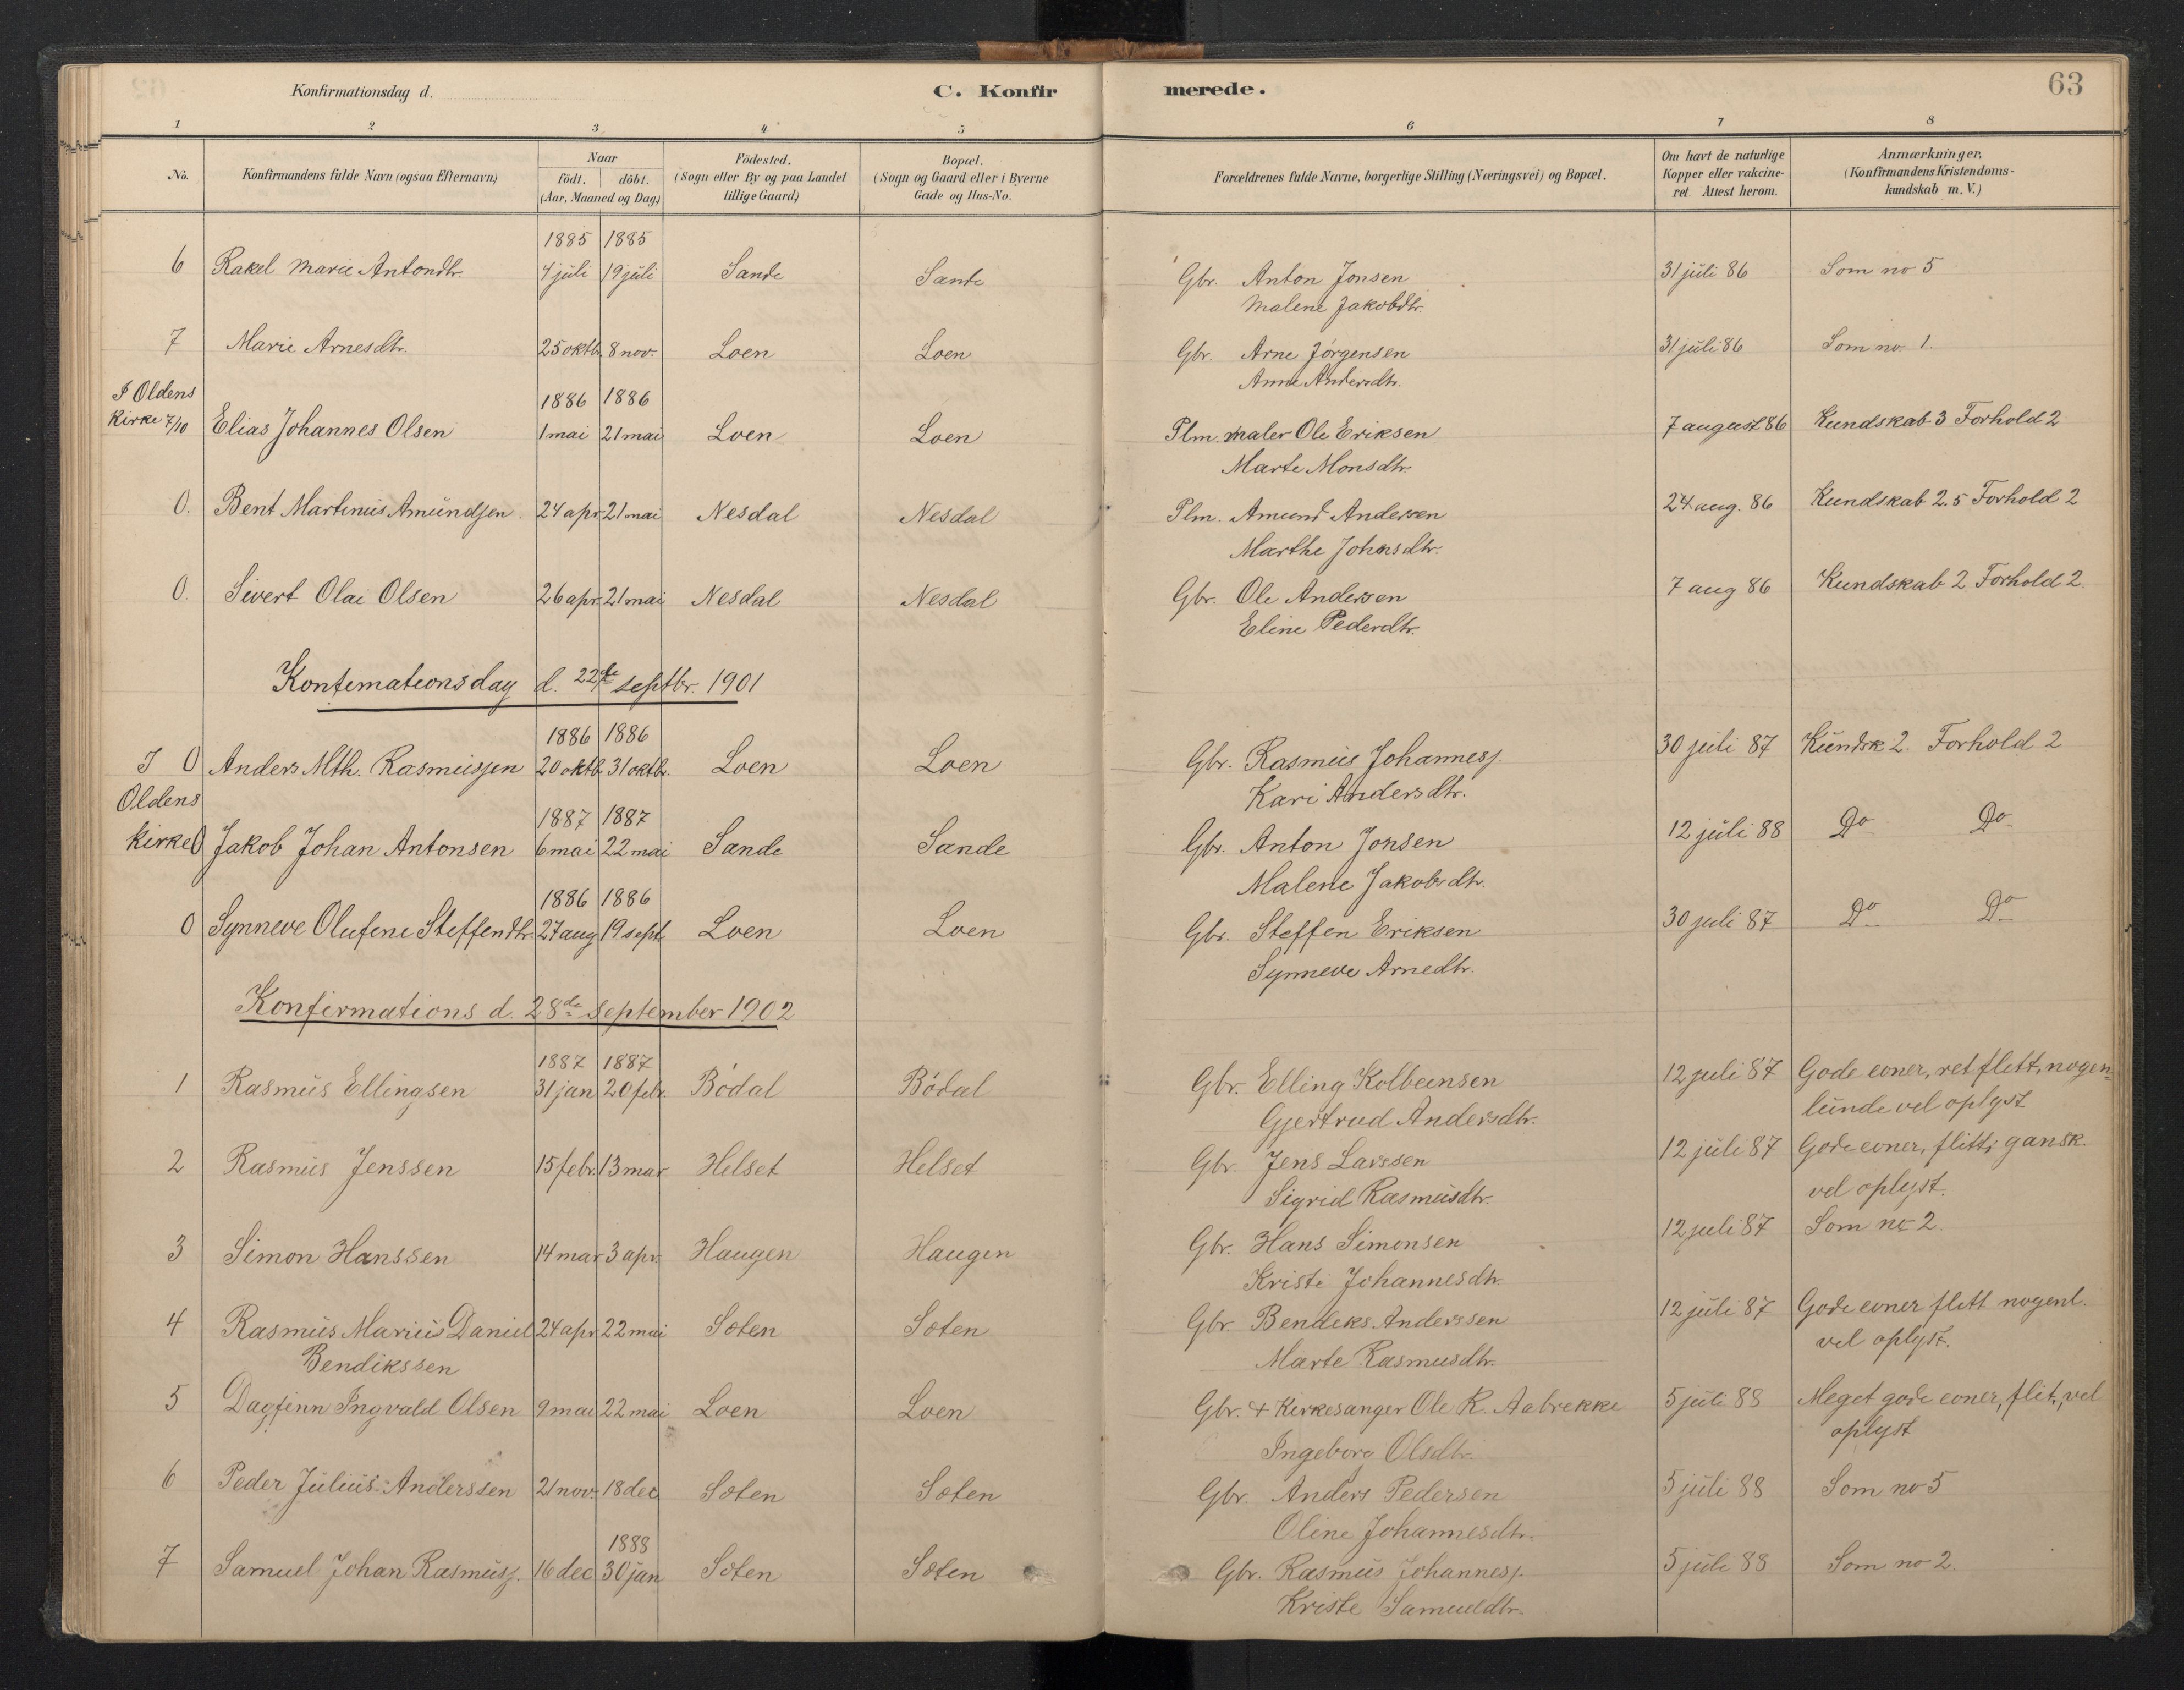 Konfirmationsdag d.
C. Konfirmerede.
63
1 2 3 4 5 6 7 8
No.
Konfirmandens fulde Navn (ogsaa Efternavn)
Naar
födt. döbt.
(Aar, Maaned og Dag)
Födested.
(Sogn eller By og paa Landet
tillige Gaard)
Bopæl.
(Sogn og Gaard eller i Byerne
Gade og Hus-No.
Forældrenes fulde Navne, borgerlige Stilling (Næringsvei) og Bopæl.
Om havt de naturlige
Kopper eller vakcine-
ret. Attest herom.
Anmærkninger.
(Konfirmandens Kristendoms-
kundskab m. V.)
1885 1885
6 Rakel Marie Antondtr. 4 juli 19 juli Sande Sande Gbr. Anton Jonsen 31 juli 86 Som no 5
Malene Jakobdtr.
7 Marie Arnesdtr. 25 oktbr. 8 nov. Loen Loen Gbr. Arne Jörgensen 31 juli 86 Som no. 1.
Anne Andersdtr.
I Oldens
Kirke 7/10
1886 1886
Elias Johannes Olsen 1 mai 21 mai Loen Loen Plm. maler Ole Eriksen 7 august 86 Kundskab 3 Forhold 2
Marte Monsdtr.
0. Bent Martinus Amundsen. 24 apr. 21 mai Nesdal Nesdal Plm. Amund Andersen 24 aug. 86 Kundskab 2.5 Forhold 2
Marthe Johnsdtr.
0. Sivert Olai Olsen 26 apr. 21 mai Nesdal Nesdal Gbr. Ole Andersen 7 aug 86 Kundskab 2 Forhold 2.
Eline Pederdtr.
Konfimationsdag d. 22de septbr. 1901
1886 1886
I 0 Anders Mth. Rasmussen 20 oktb. 31 oktbr. Loen Loen Gbr. Rasmus Johanness. 30 juli 87 Kundsk 2. Forhold 2
Kari Andersdtr.
Oldens
1887 1887
kirke 0 Jakob Johan Antonsen 6 mai 22 mai Sande Sande Gbr. Anton Jonsen 12 juli 88 Do Do
Malene Jakobsdtr.
1886 1886
0 Synneve Olufene Steffendtr. 27 aug 19 sept. Loen Loen Gbr. Steffen Eriksen 30 juli 87 Do Do
Synneve Arnedtr.
Konfirmations d. 28de september 1902
1887 1887
1 Rasmus Ellingsen 31 jan 20 febr. Bödal Bödal Gbr. Elling Kolbeensen 12 juli 87 Gode evner, ret flett, nogen-
Gjertrud Andersdtr. lunde vel oplyst
2 Rasmus Jenssen 15 febr. 13 mar Helset Helset Gbr. Jens Larssen 12 juli 87 Gode evner, flitt, gansk.
Sigrid Rasmusdtr. vel oplyst.
3 Simon Hanssen 14 mar 3 apr. Haugen Haugen Gbr. Hans Simonsen 12 juli 87 Som no 2.
Kristi Johannesdtr.
4 Rasmus Marius Daniel 24 apr 22 mai Sæten Sæten Gbr. Bendeks Anderssen 12 juli 87 Gode evner flett nogenl.
Bendikssen Marte Rasmusdtr. vel oplyst.
5 Dagfinn Ingvald Olsen 9 mai 22 mai Loen Loen Gbr. + Kirkesanger Ole R. Aabrekke 5 juli 88 Meget gode evner, flit, vel
Ingeborg Olsdtr. oplyst
6 Peder Julius Anderssen 21 nov. 18 dec. Sæten Sæten Gbr. Anders Pedersen 5 juli 88 Som no 5
Oline Johannesdtr.
1888
7 Samuel Johan Rasmuss. 16 dec 30 jan Sæten Sæten Gbr. Rasmus Johanness. 5 juli 88 Som no 2.
Kriste Samueldtr.